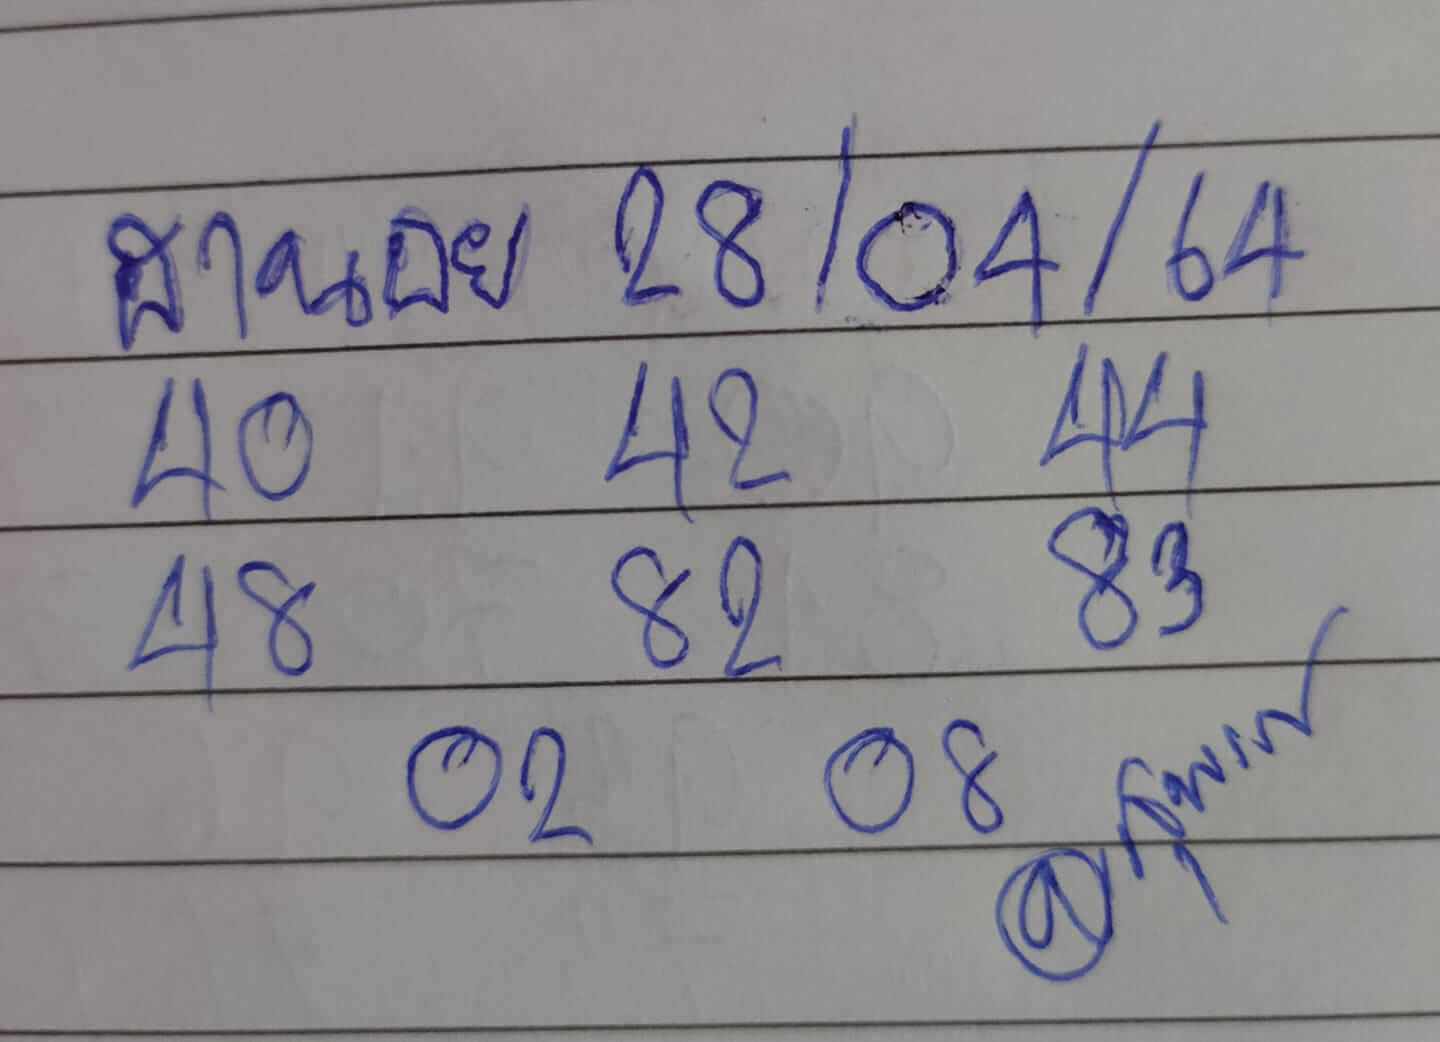 ฮานอย 28/04/64
40 42 44
48 82 83
02 08